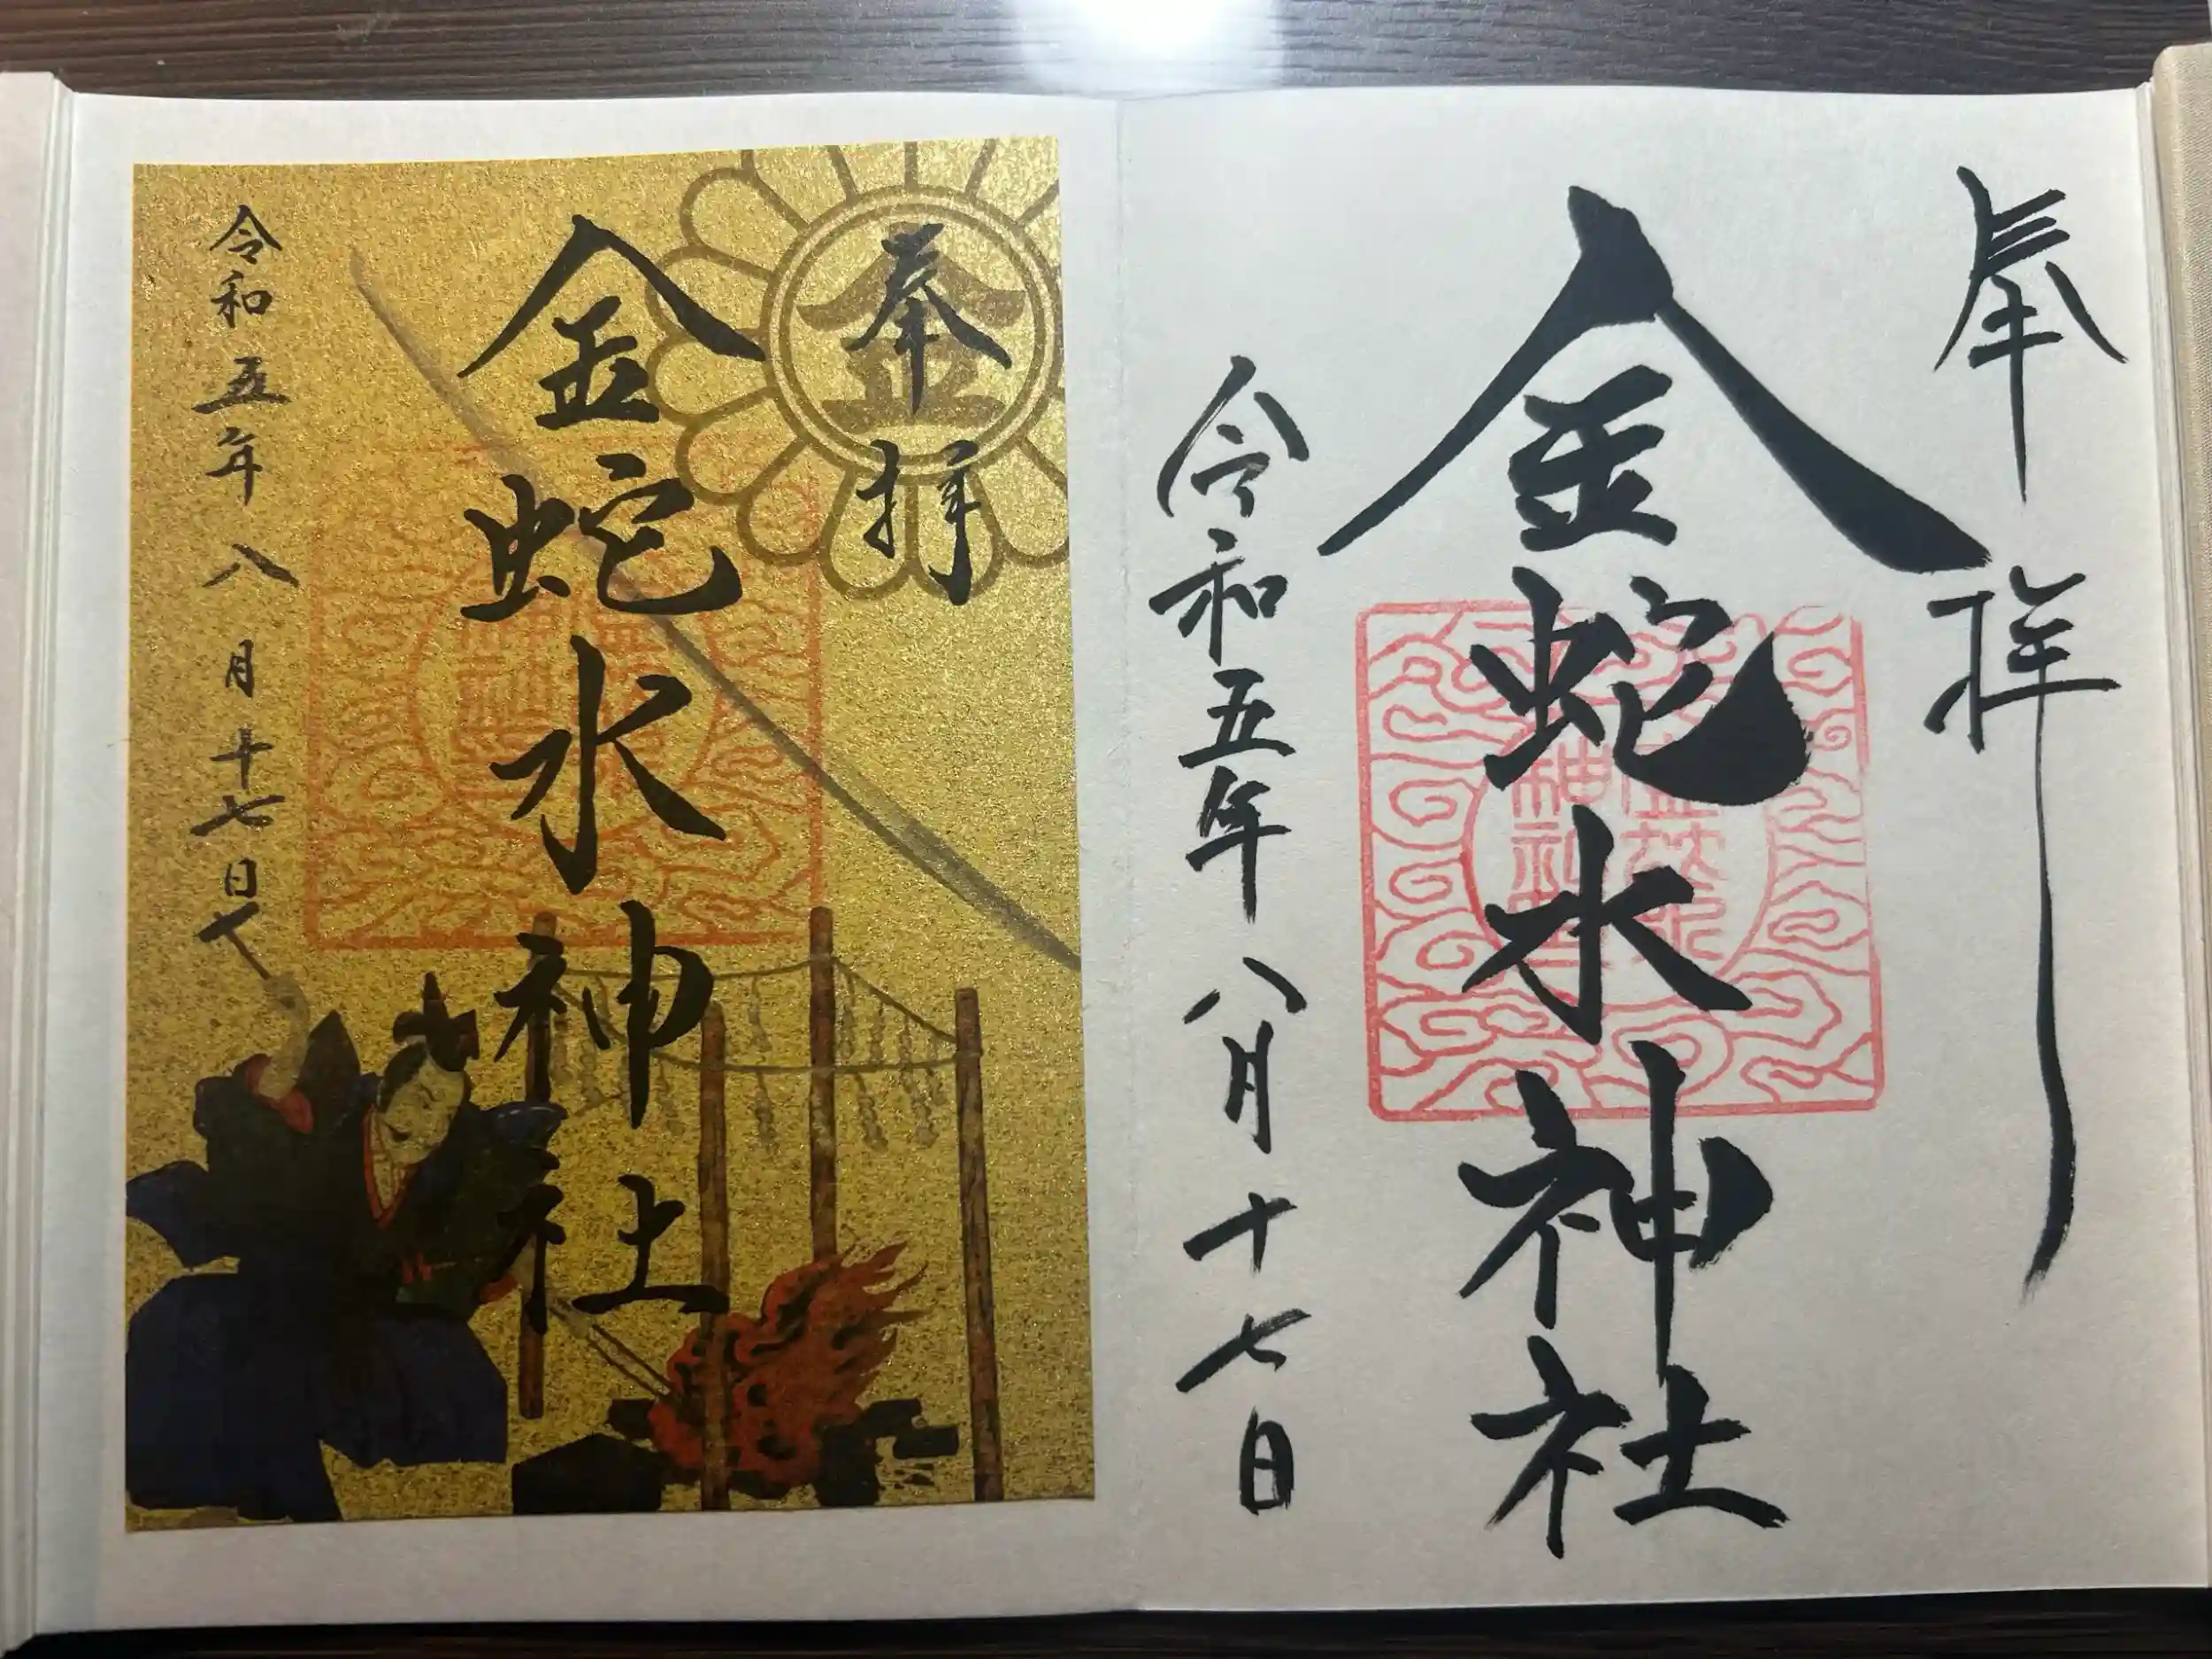 奉拝
金蛇水神社
令和五年八月十七日
奉拝
金
金蛇水神社
令和五年八月十七日